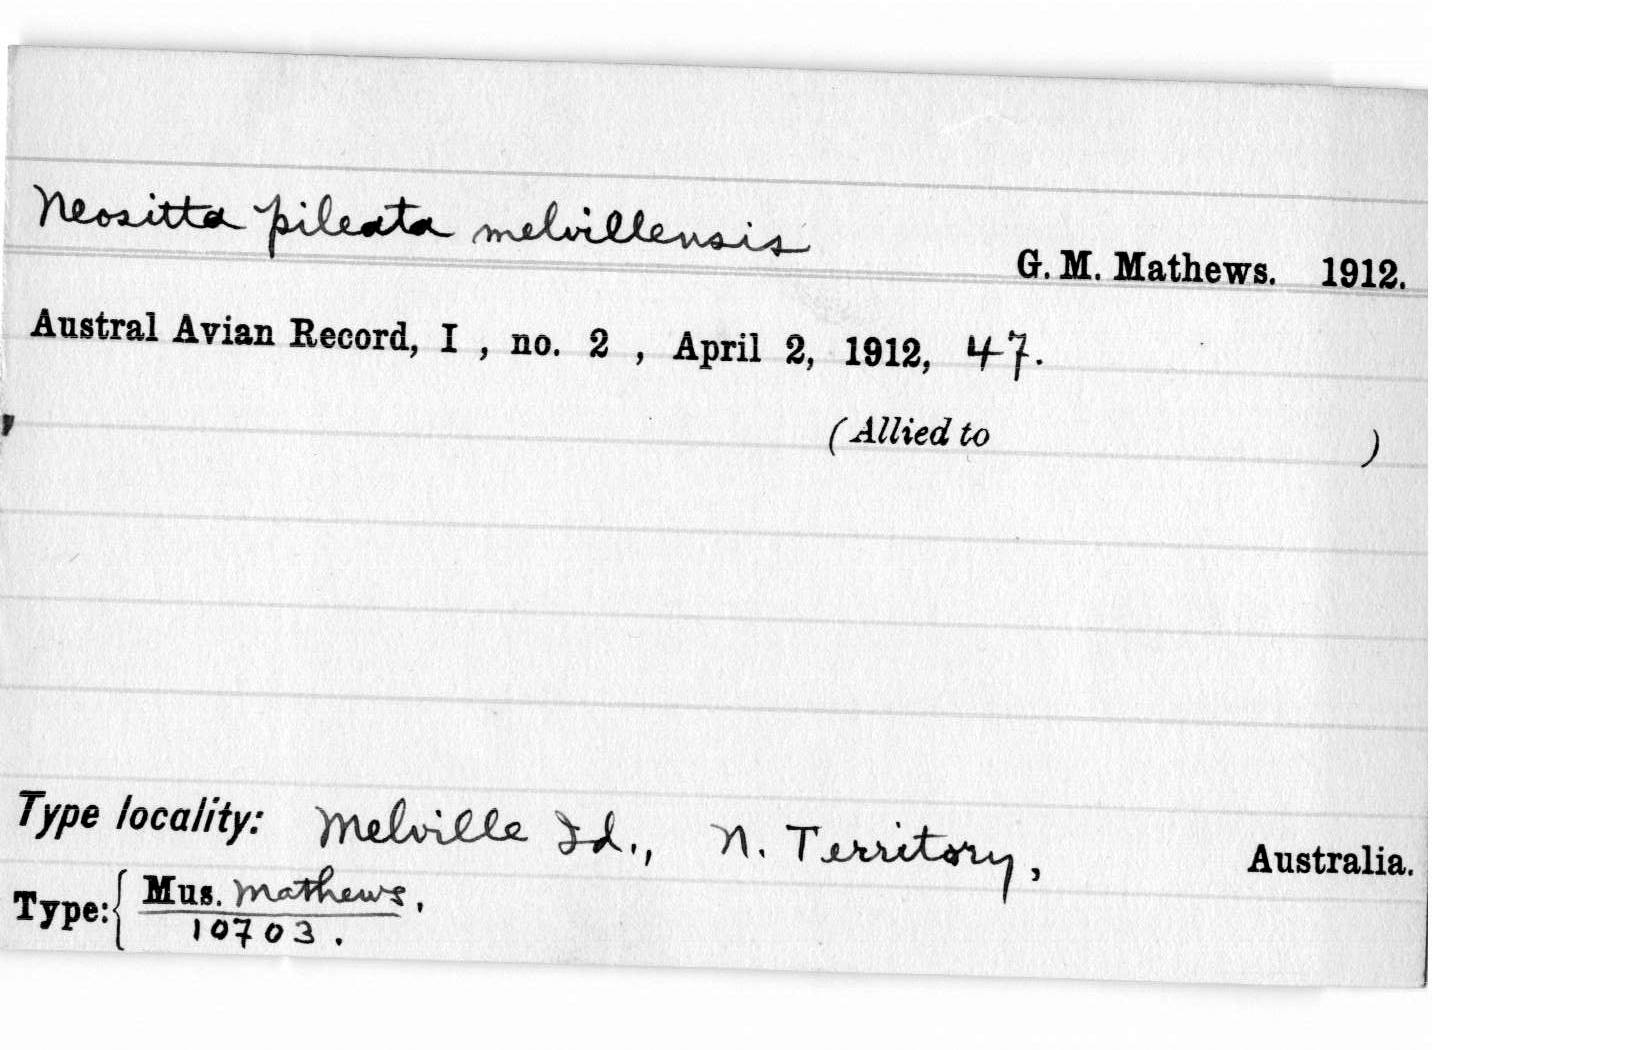 Neositta pileata melvillensis
G. M. Mathews. 1912.
Austral Avian Record, I , no. 2 , April 2, 1912, 47.
(Allied to )
Type locality: Melville Id., N. Territory, Australia.
Type: { Mus. Mathews.
10703.